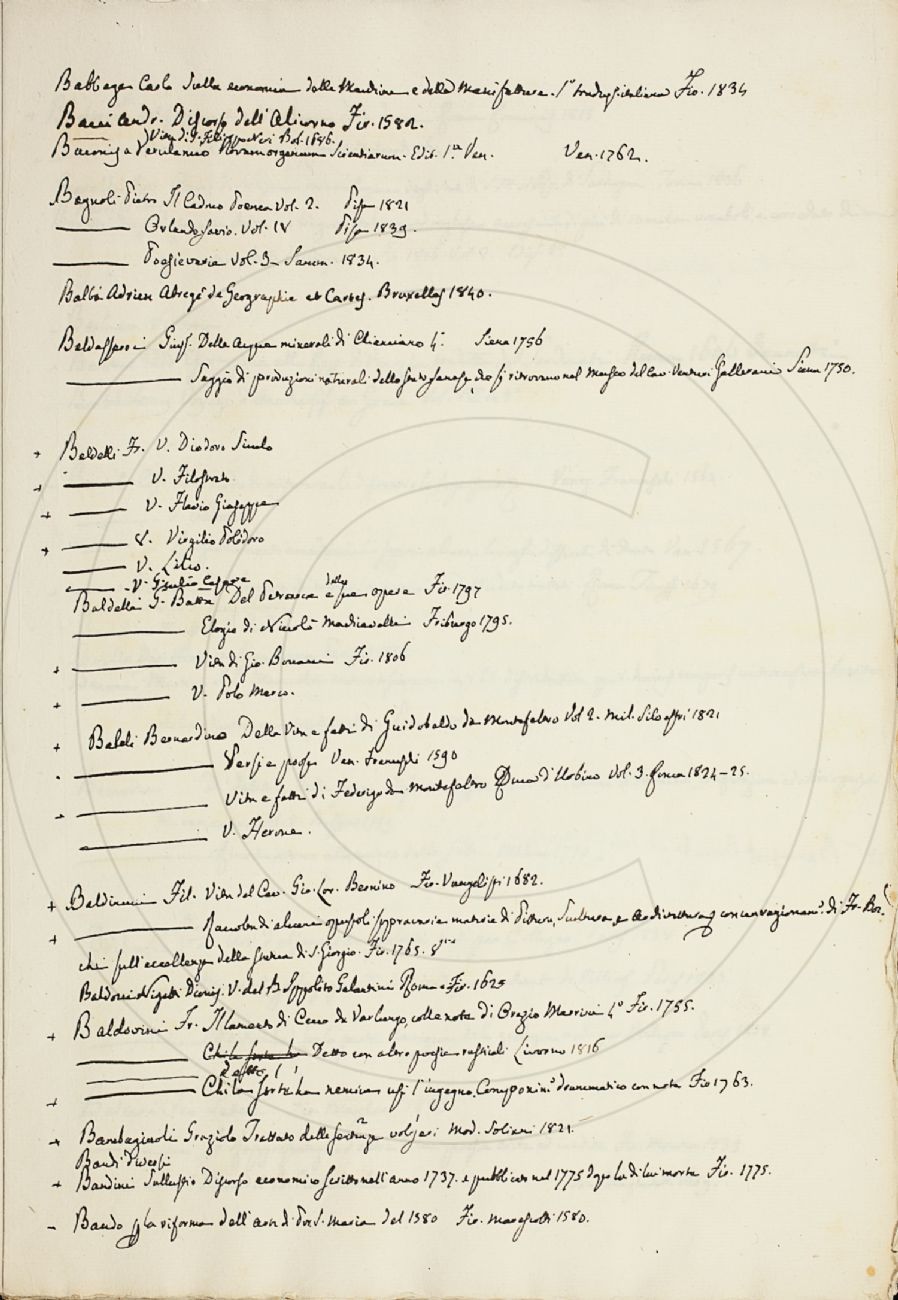 Babbage Carlo Sulla economia delle Macchine e delle Manifatture. 1ª traduz. italiana Fir. 1834
Bacci Andr. Discorso dell'Alicorno Fir. 1582.
Vita di S. Filippo Neri Bol. 1686.
Baconis a Verulamio Novum organum Scientiarum. Edit. 1.ª Ven. Ven. 1762.
Bagnoli Pietro Il Cadmo Poema Vol. 2. Pisa 1821
Orlando Savio. Vol. IV Pisa 1839.
Poesie varie Vol. 3 1834.
Balbi Adrien Abregé de Geographie et Cartes. Bruxelles 1840.
Baldasseroni Gius. Delle Acque minerali di Chianciano 4.° Siena 1756
Saggio di produzioni naturali dello Stato Sanese che si ritrovano nel Museo del Cav. Venturi Gallerani Siena 1750.
+ Baldelli Fr. V. Diodoro Siculo
+ V. Filostrato
+ V. Flavio Giuseppe
+ V. Virgilio Polidoro
V. Livio.
V. Giulio Cesare
Baldelli G. Batta Del Petrarca e delle sue opere Fir. 1797
Elogio di Niccolò Machiavelli Friburgo 1795.
+ Vita di Gio. Boccacci Fir. 1806
+ V. Polo Marco.
+ Baldi Bernardino Della Vita e fatti di Guidobaldo da Montefeltro Vol 2. Mil. Silvestri 1821
Versi e prose Ven. Franceschi 1590
Vita e fatti di Federigo da Montefeltro Duca d'Urbino Vol. 3. 1824-25.
V. Herone.
+ Baldinucci Fil. Vita del Cav. Gio. Lor. Bernino Fir. Vangelisti 1682.
+ Raccolta di alcuni opuscoli sopra varie materie di Pittura, Scultura, e Architettura con un ragionam.° di Fr. Boc-
chi sull'eccellenza della statua di S. Giorgio. Fir. 1765. 8.vo
Baldovini Nigetti Dionig. V. del B. Ippolito Galantini Roma e Fir. 1625
+ Baldovini Fr. Il lamento di Cecco da Varlungo, colle note di Orazio Marrini 4.° Fir. 1755.
Chi la sorte ha Detto con altre poesie rusticali Livorno 1816
Detto
+ Chi la sorte ha nemica usi l'ingegno. Componim.° drammatico con note Fir 1763.
+ Bambagiuoli Graziolo Trattato delle sentenze volgari Mod. Soliani 1821.
Bandi diversi
+ Bandini Sallustio Discorso economico scritto nell'anno 1737. e pubblicato nel 1775 dopo la di lui morte Fir. 1775.
- Bando p la riforma dell'arte di Por S. Maria del 1580 Fir. Marescotti 1580.